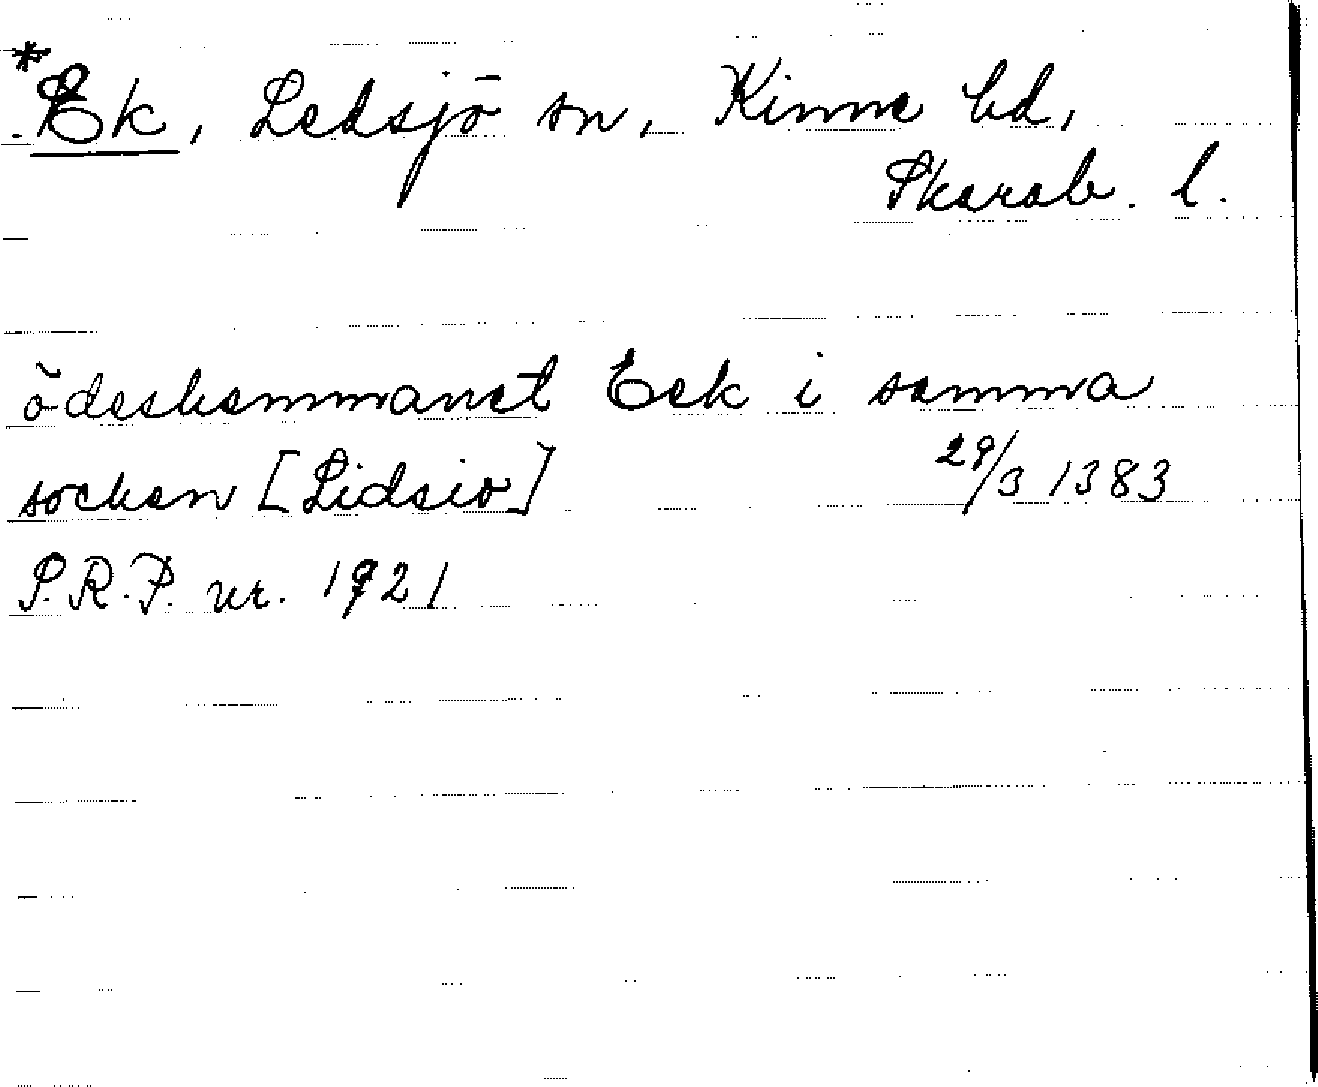 *Ek, Ledsjö sn, Kinne hd,
Skarab. l.
ödeshemmanet Eek i samma
socken [Lidsio] 29/3 1383
S.R.P. nr. 1921